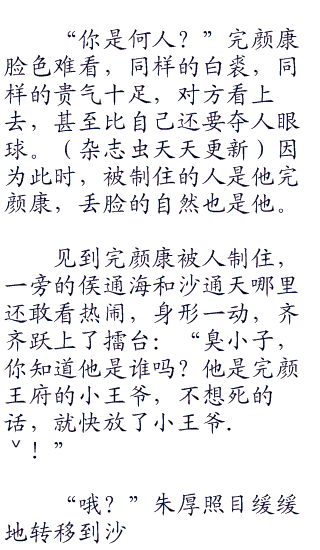 “你是何人？”完颜康
脸色难看，同样的白裘，同
样的贵气十足，对方看上
去，甚至比自己还要夺人眼
球。（杂志虫天天更新）因
为此时，被制住的人是他完
颜康，丢脸的自然也是他。
见到完颜康被人制住，
一旁的侯通海和沙通天哪里
还敢看热闹，身形一动，齐
齐跃上了擂台：“臭小子，
你知道他是谁吗？他是完颜
王府的小王爷，不想死的
话，就快放了小王爷.
ˇ！”
“哦？”朱厚照目缓缓
地转移到沙